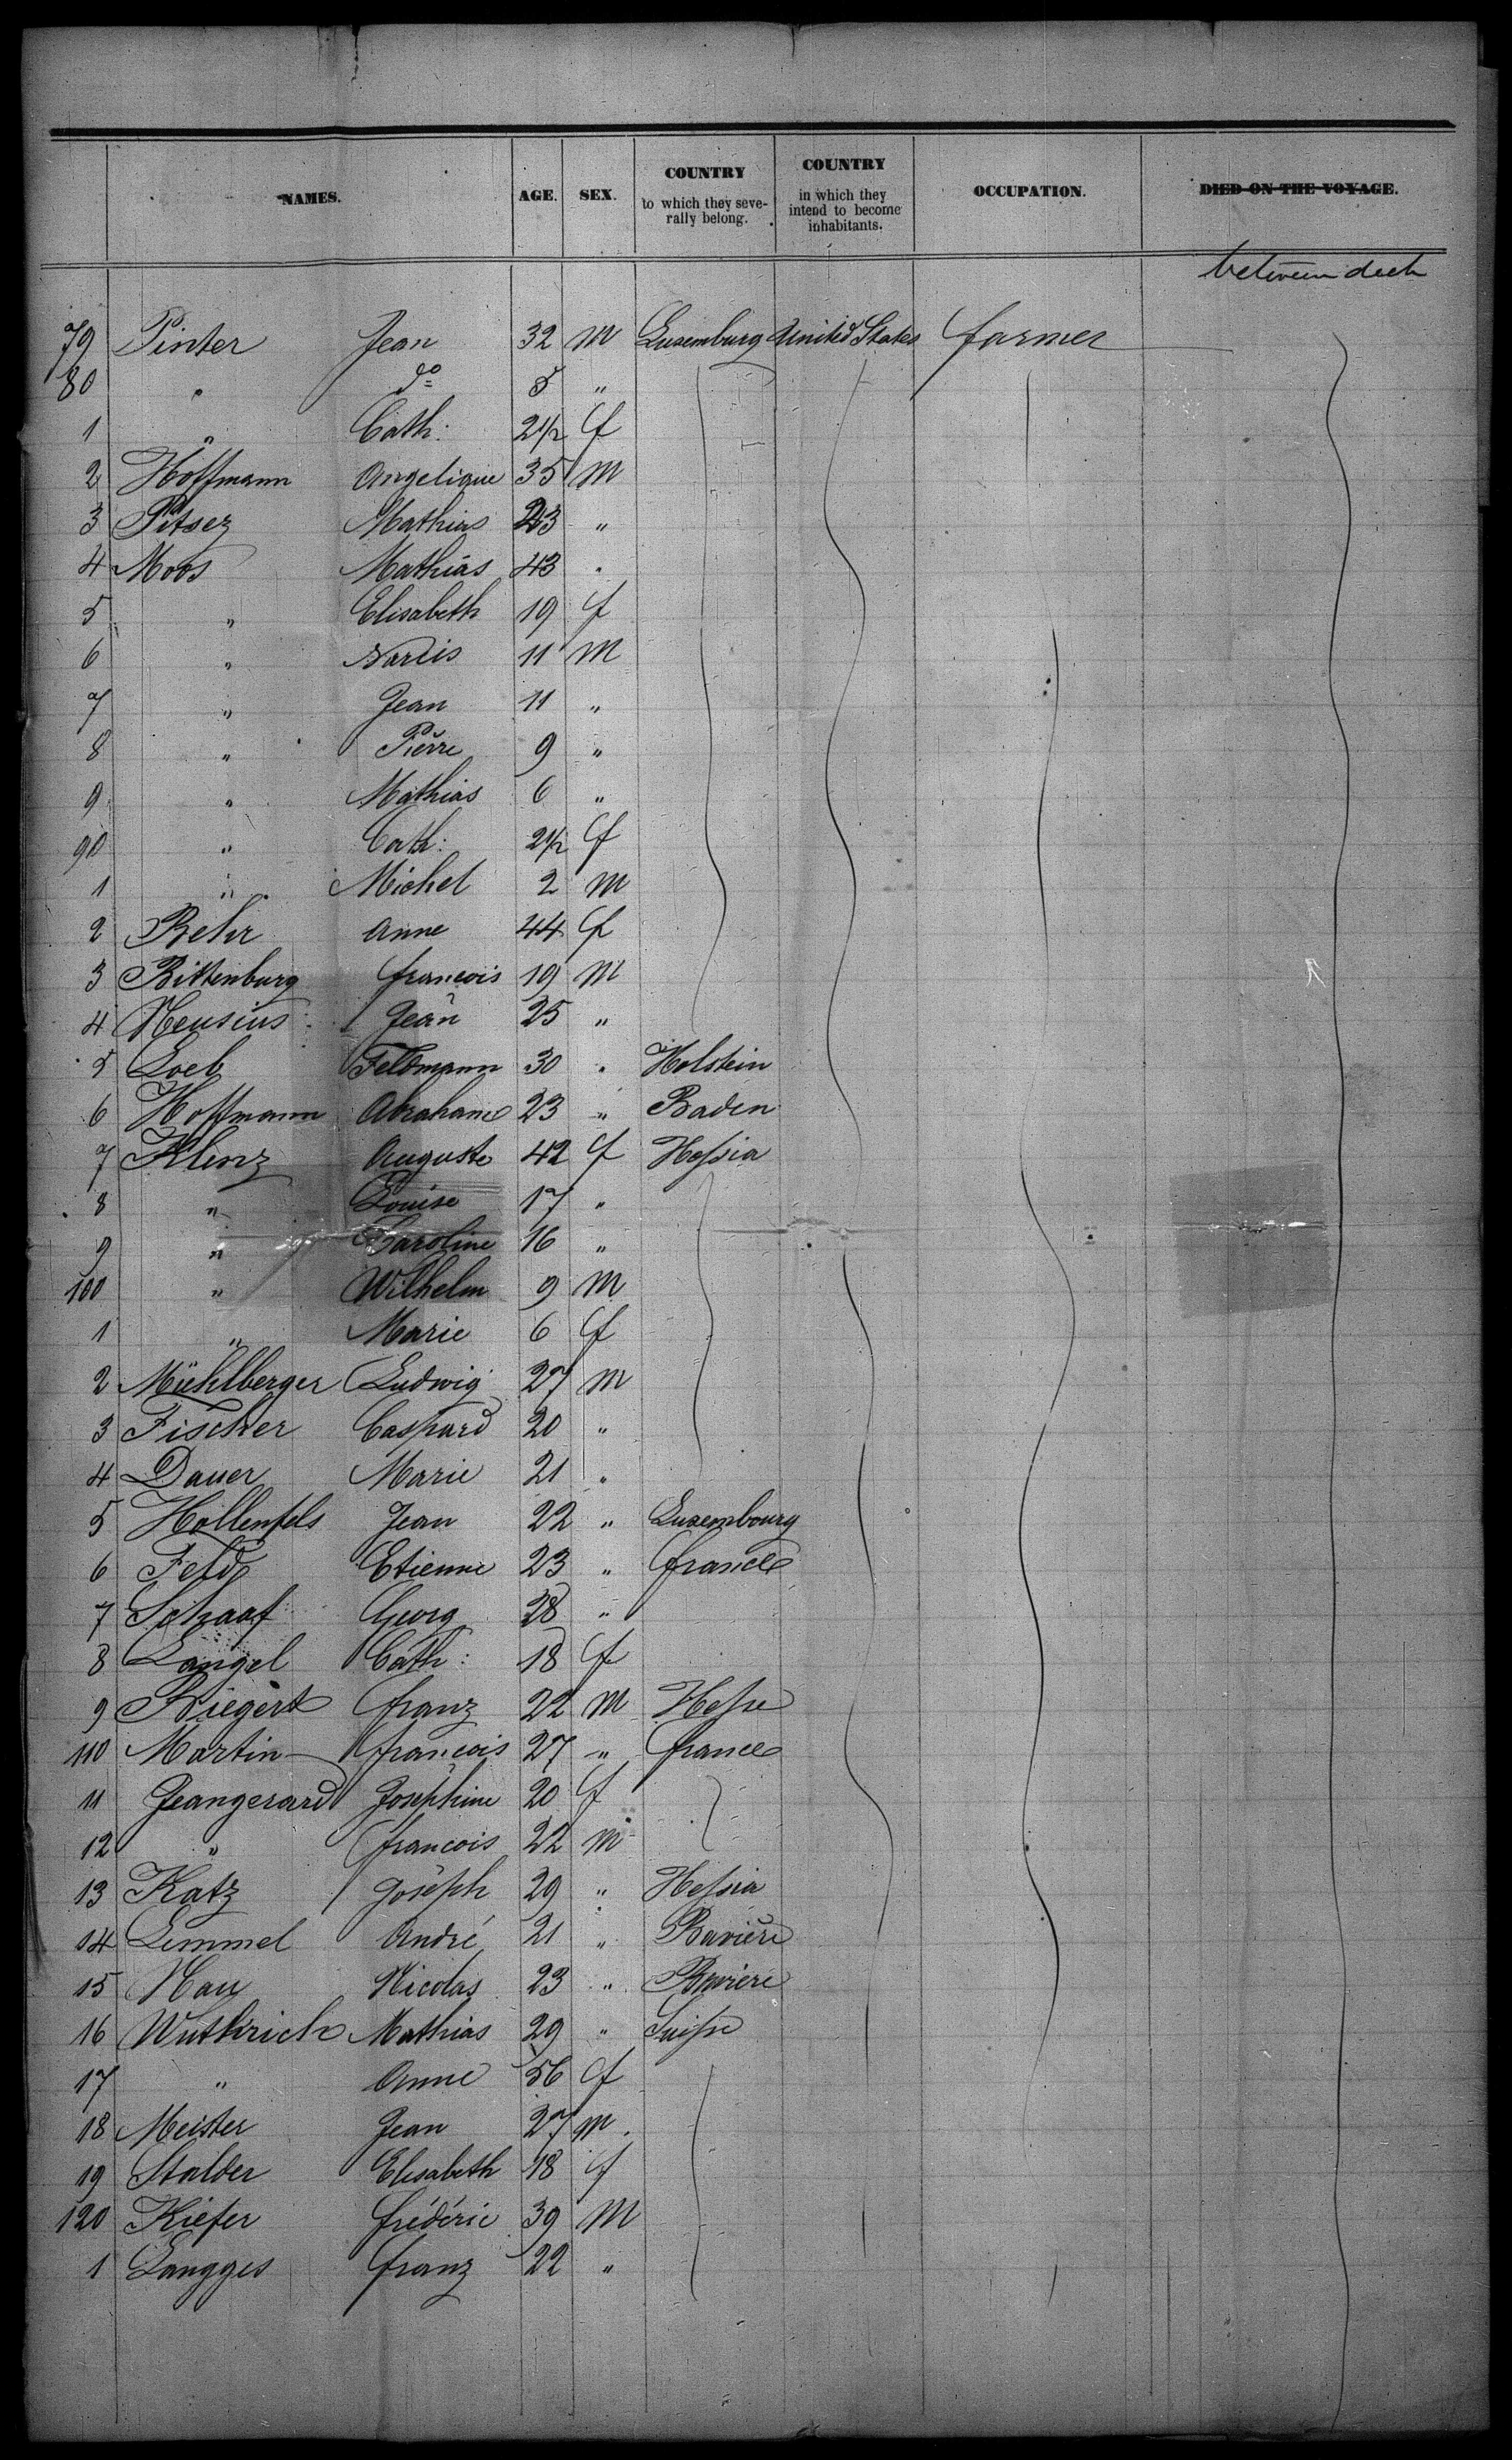 NAMES. AGE. SEX. COUNTRY to which they severally belong. COUNTRY in which they intend to become inhabitants. OCCUPATION. DIED ON THE VOYAGE.
between deck
79 Pinter Jean 32 m Luxemburg United States farmer
80 " do 5 "
1 " Cath: 2 1/2 f
2 Hoffmann Angelique 35 m
3 Pitsez Mathias 23 "
4 Moos Mathias 43 "
5 " Elisabeth 19 f
6 " Narcis 11 m
7 " Jean 11 "
8 " Pierre 9 "
9 " Mathias 6 "
90 " Cath: 2 1/2 f
1 " Michel 2 m
2 Behr Anne 44 f
3 Bittenburg francois 19 m
4 Neusius Jean 25 "
5 Loeb Feldmann 30 " Holstein
6 Hoffmann Abraham 23 " Baden
7 Klenz Auguste 42 f Hessia
8 " Louise 17 "
9 " Caroline 16 "
100 " Wilhelm 9 m
1 " Marie 6 f
2 Mühlberger Ludwig 27 m
3 Fischer Caspard 20 "
4 Dauer Marie 21 "
5 Hollenfels Jean 22 " Luxembourg
6 Feld Etienne 23 " france
7 Schaaf Georg 28 "
8 Langel Cath: 18 f
9 Riegert franz 22 m Hesse
110 Martin francois 27 " france
11 Jeangerard Josephine 20 f
12 " francois 22 m
13 Katz Joseph 29 " Hessia
14 Lemmel André 21 " Bavière
15 Nau Nicolas 23 " Baviere
16 Wuthrich Mathias 29 " Suisse
17 " Anne 56 f
18 Meister Jean 27 m.
19 Stalder Elisabeth 18 f
120 Kiefer frédéric 39 m
1 Langges franz 22 "